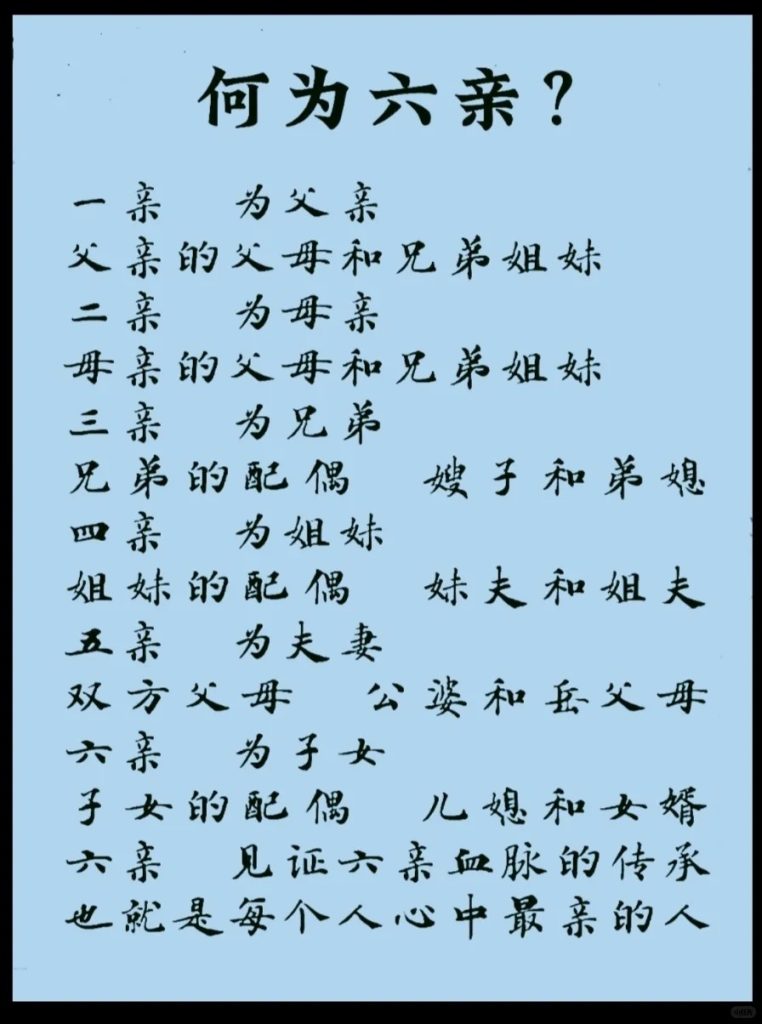 何为六亲?
一亲 为父亲
父亲的父母和兄弟姐妹
二亲 为母亲
母亲的父母和兄弟姐妹
三亲 为兄弟
兄弟的配偶 嫂子和弟媳
四亲 为姐妹
姐妹的配偶 妹夫和姐夫
五亲 为夫妻
双方父母 公婆和岳父母
六亲 为子女
子女的配偶 儿媳和女婿
六亲 见证六亲血脉的传承
也就是每个人心中最亲的人